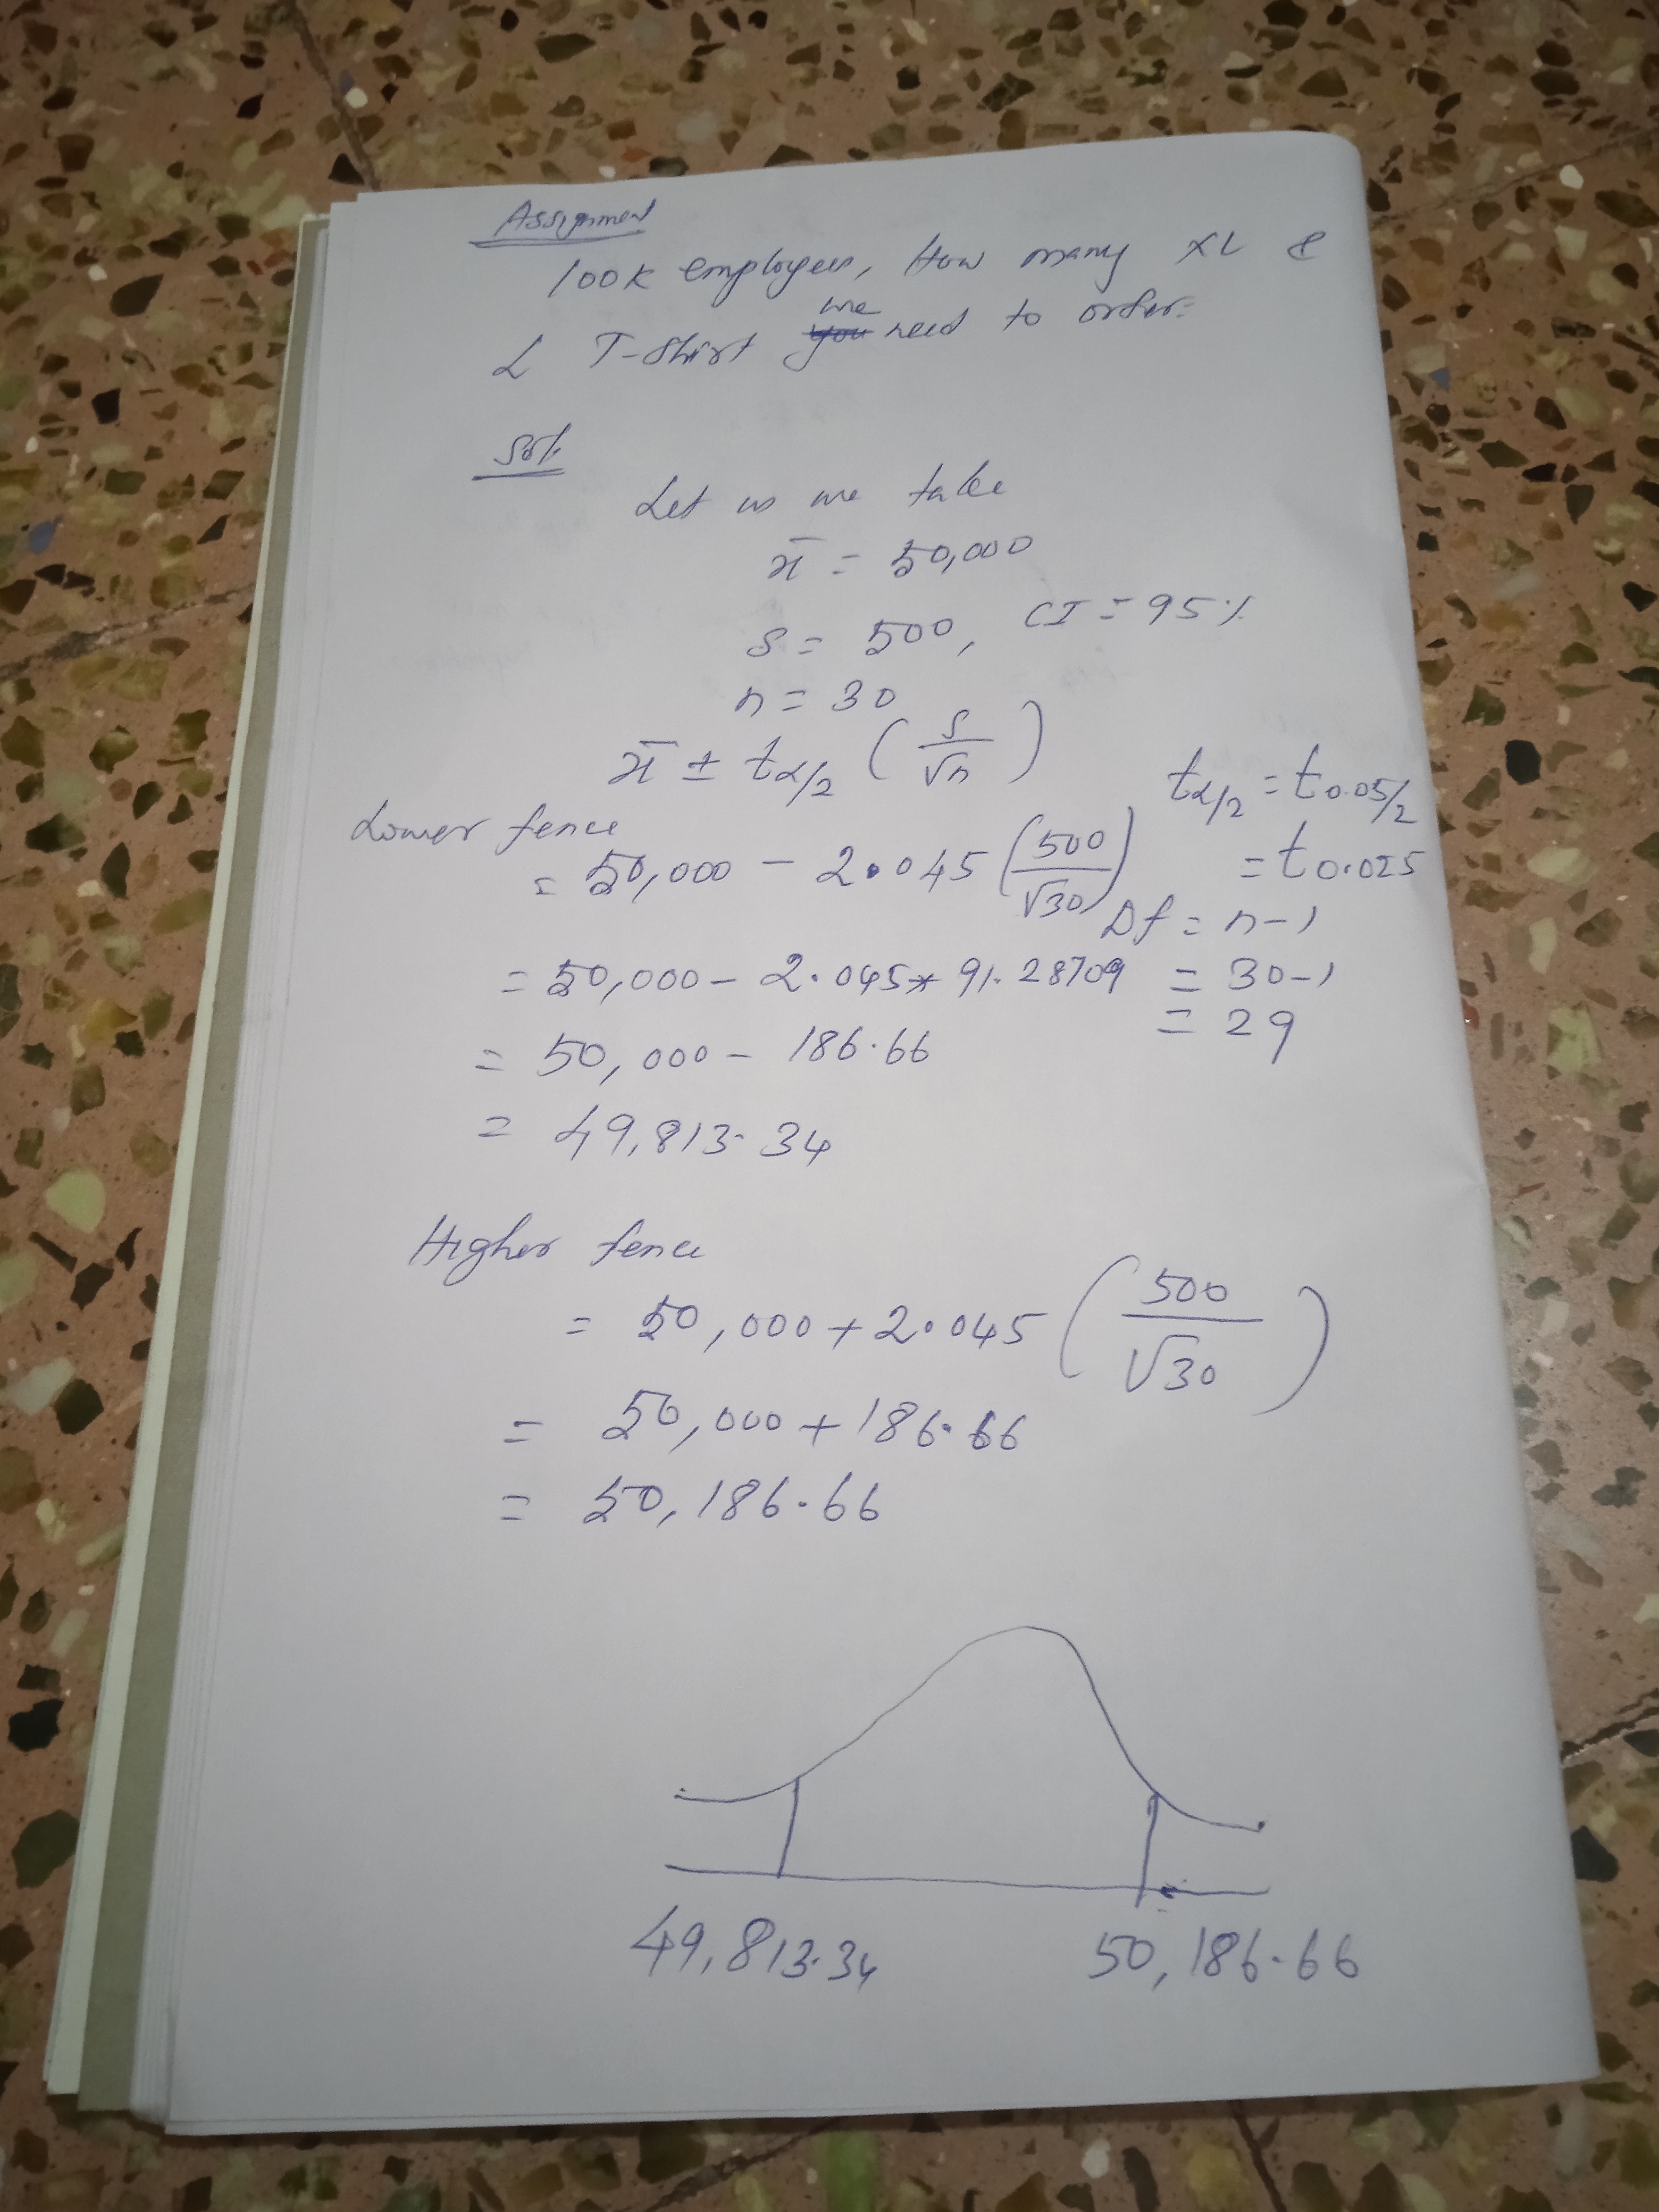 Assignment
100K employees, How many XL &
L T-shirt we need to order:
Sol.
Let us we take
x̄ = 50,000
S = 500, CI = 95%
n = 30
x̄ ± tα/2 (S/√n)
tα/2 = t0.05/2
Lower fence
= 50,000 - 2.045 (500/√30)
= t0.025
Df = n-1
= 50,000 - 2.045* 91.28709
= 30-1
= 50,000 - 186.66
= 29
= 49,813.34
Higher fence
= 50,000 + 2.045 (500/√30)
= 50,000 + 186.66
= 50,186.66
49,813.34 50,186.66